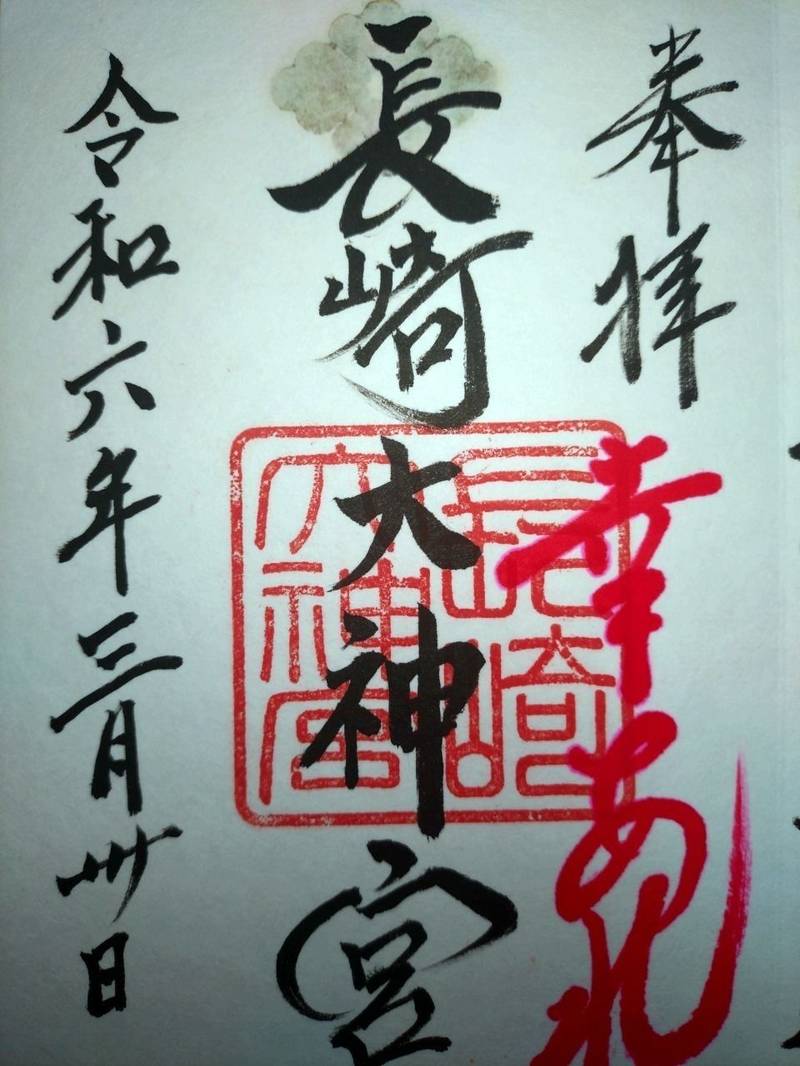 奉拝
幸あれ
長崎大神宮
長崎
大神宮
令和六年三月卅日